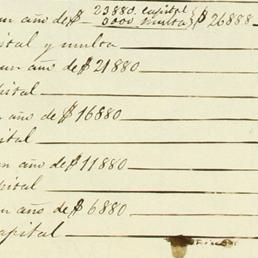 un año de $ 23880 capital
3000 multa } $ 26888
ital y multa
un año de $ 21880
pital
n año de $ 16880
ital
n año de $ 11880
pital
un año de $ 6880
apital